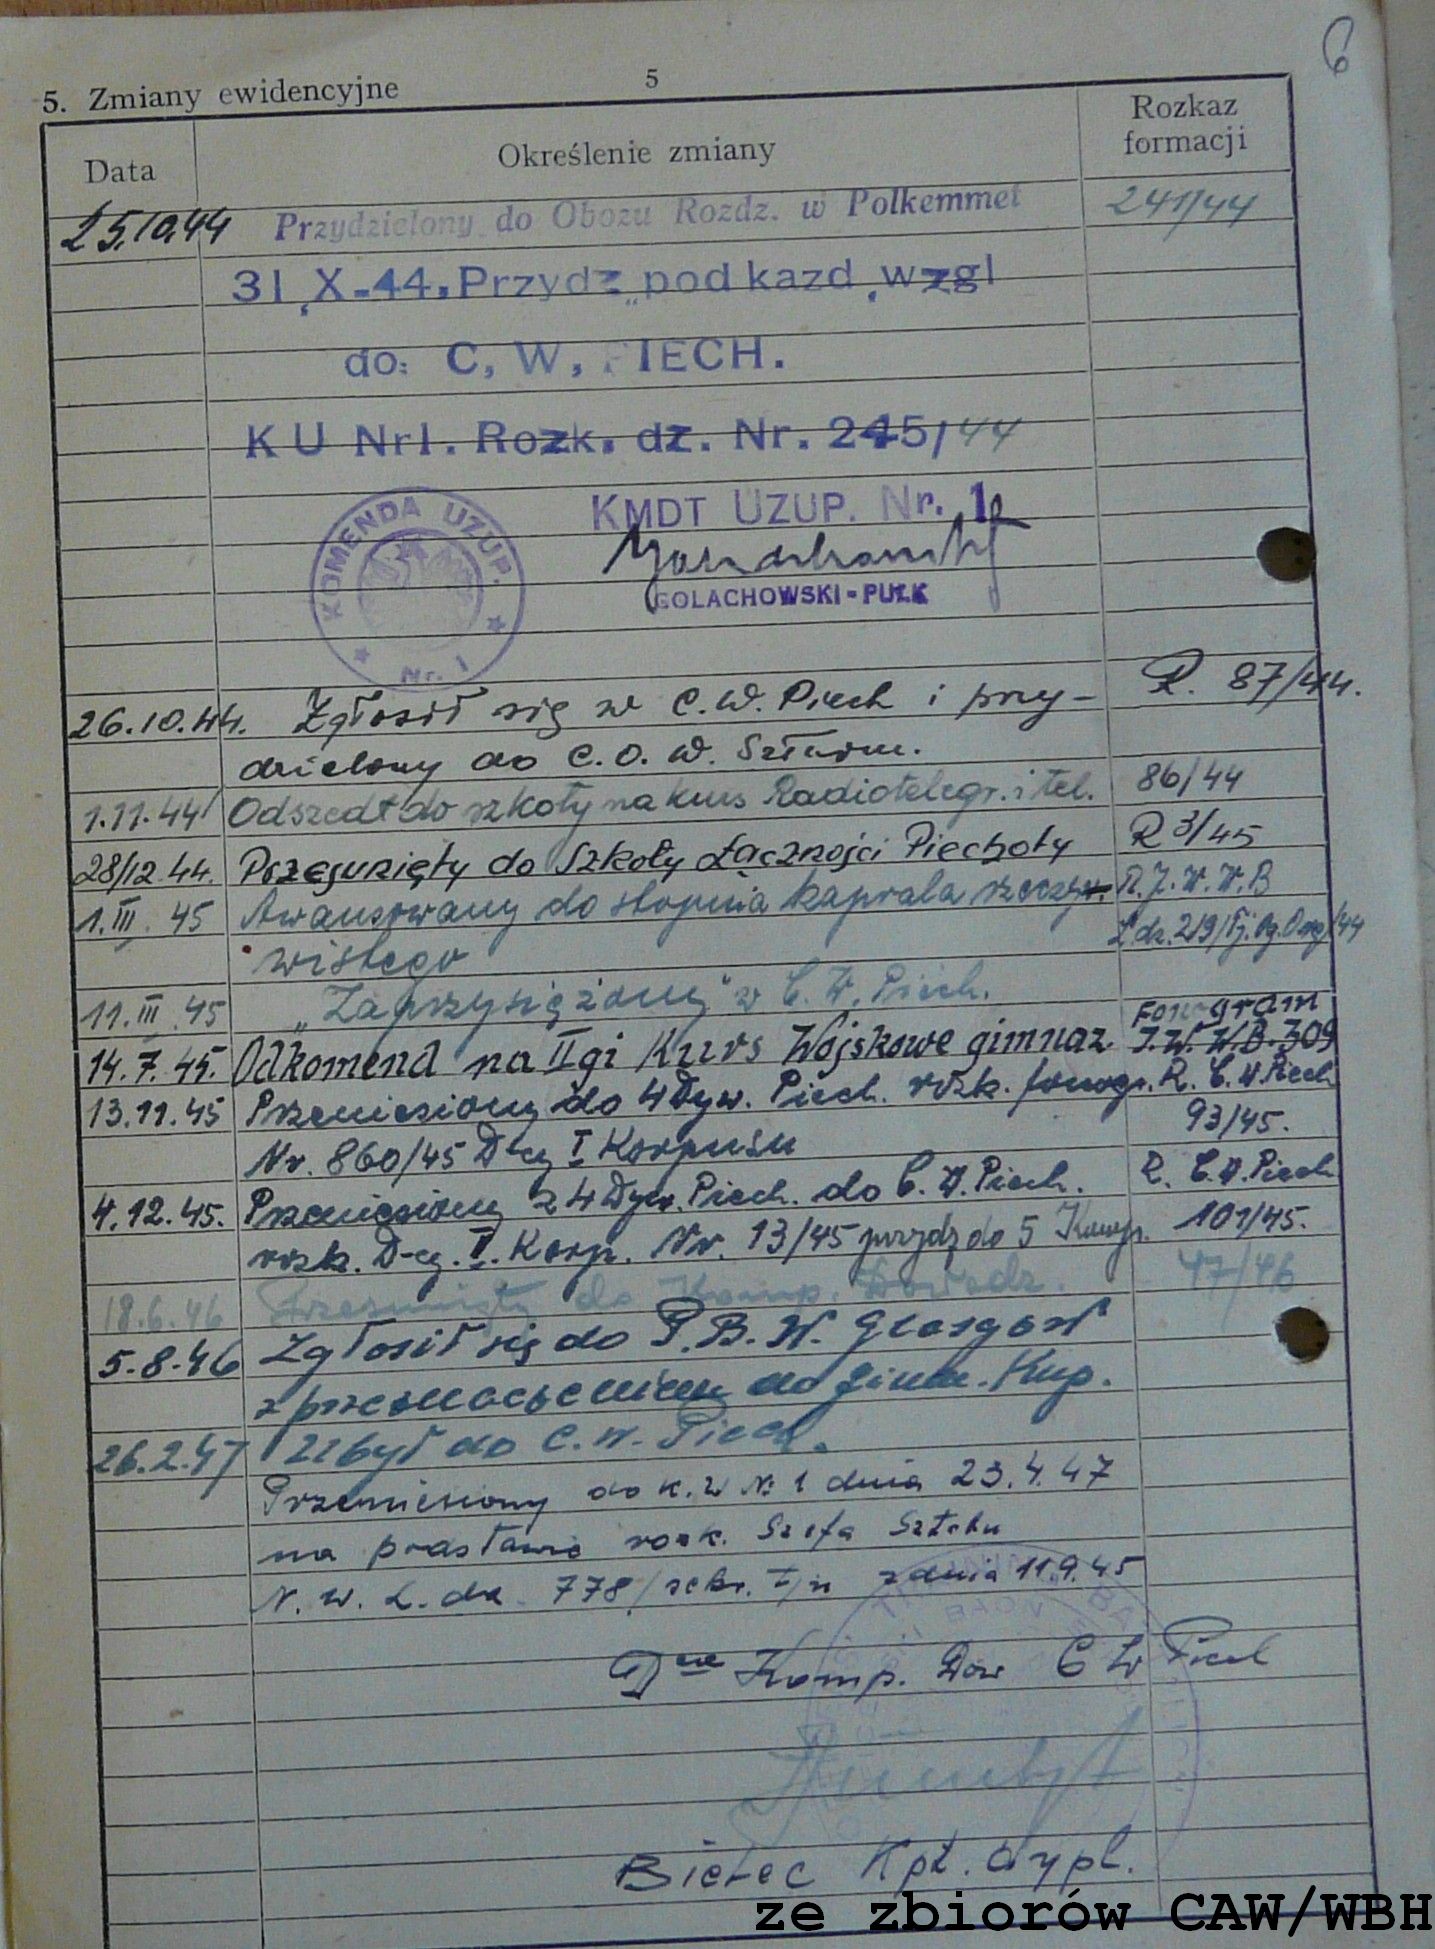 6
5. Zmiany ewidencyjne
5
Data
Określenie zmiany
Rozkaz formacji
25.10.44 Przydzielony do Obozu Rozdz. w Polkemmet 241/44
31.X-44. Przydz. pod kazd. wzgl
do: C. W. PIECH.
KU Nr1. Rozk. dz. Nr. 245/44
KOMENDA UZUP. Nr. 1
KMDT UZUP. Nr. 1
GOLACHOWSKI - PUŁK
26.10.44. Zgłosił się w C.W. Piech i przy- R. 87/44.
dzielony do C.O.W. Szturm.
1.11.44 Odszedł do szkoły na kurs Radiotelegr. i tel. 86/44
28/12.44. Przesunięty do Szkoły Łączności Piechoty R 3/45
1.III.45 Awansowany do stopnia kaprala rzeczy- R.J.W.W.B
wistego L.dz. 219/Tj.Og.Org/44
11.III.45 „Zaprzysiężony" w C.W. Piech.
Fonogram
14.7.45. Odkomend na IIgi Kurs Wojskowe gimnaz. J.W.W.B. 309
13.11.45 Przeniesiony do 4 Dyw. Piech. rozk. fonogr. R. C.W. Piech
Nr. 860/45 D-cy I Korpusu 93/45.
4.12.45. Przeniesiony z 4 Dyw. Piech. do C.W. Piech. R. C.W. Piech
rozk. D-cy. I. Korp. Nr. 13/45 przydz do 5 Komp. 101/45.
18.6.46 Przesunięty do Komp. Dowodz. 47/46
5.8.46 Zgłosił się do P.B.W. Glasgow
z przeznaczeniem do gimn. Kup.
26.2.47 Ubył do C.W. Piech.
Przeniesiony do K.W Nr 1 dnia 23.4.47
na podstawie rozk. Szefa Sztabu
N.W. L.dz. 778/ z dnia 11.9.45
Dca Komp. Dow C W Piech
Bielec Kpt. dypl.
ze zbiorów CAW/WBH